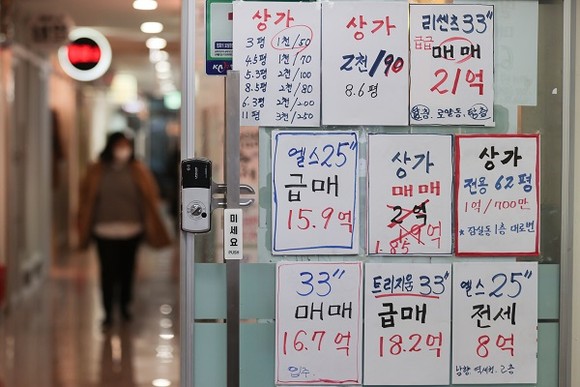 상가
3평 1천/50
4.5평 1천/70
5.3평 1천/100
8.5평 2천/80
6.3평 2천/200
11평 3천/250
상가
2천/90
8.6평
리센츠 33"
급급
매매
21억
로얄동, 탑층
엘스 25"
급매
15.9억
상가
매매
2억
1.9억
1.85
상가
전용 62평
1억/700만
* 잠실동 1층 대로변
미세요
PUSH
33"
매매
16.7억
입주
트리지움 33"
급매
18.2억
엘스 25"
전세
8억
남향 역세권. 고층